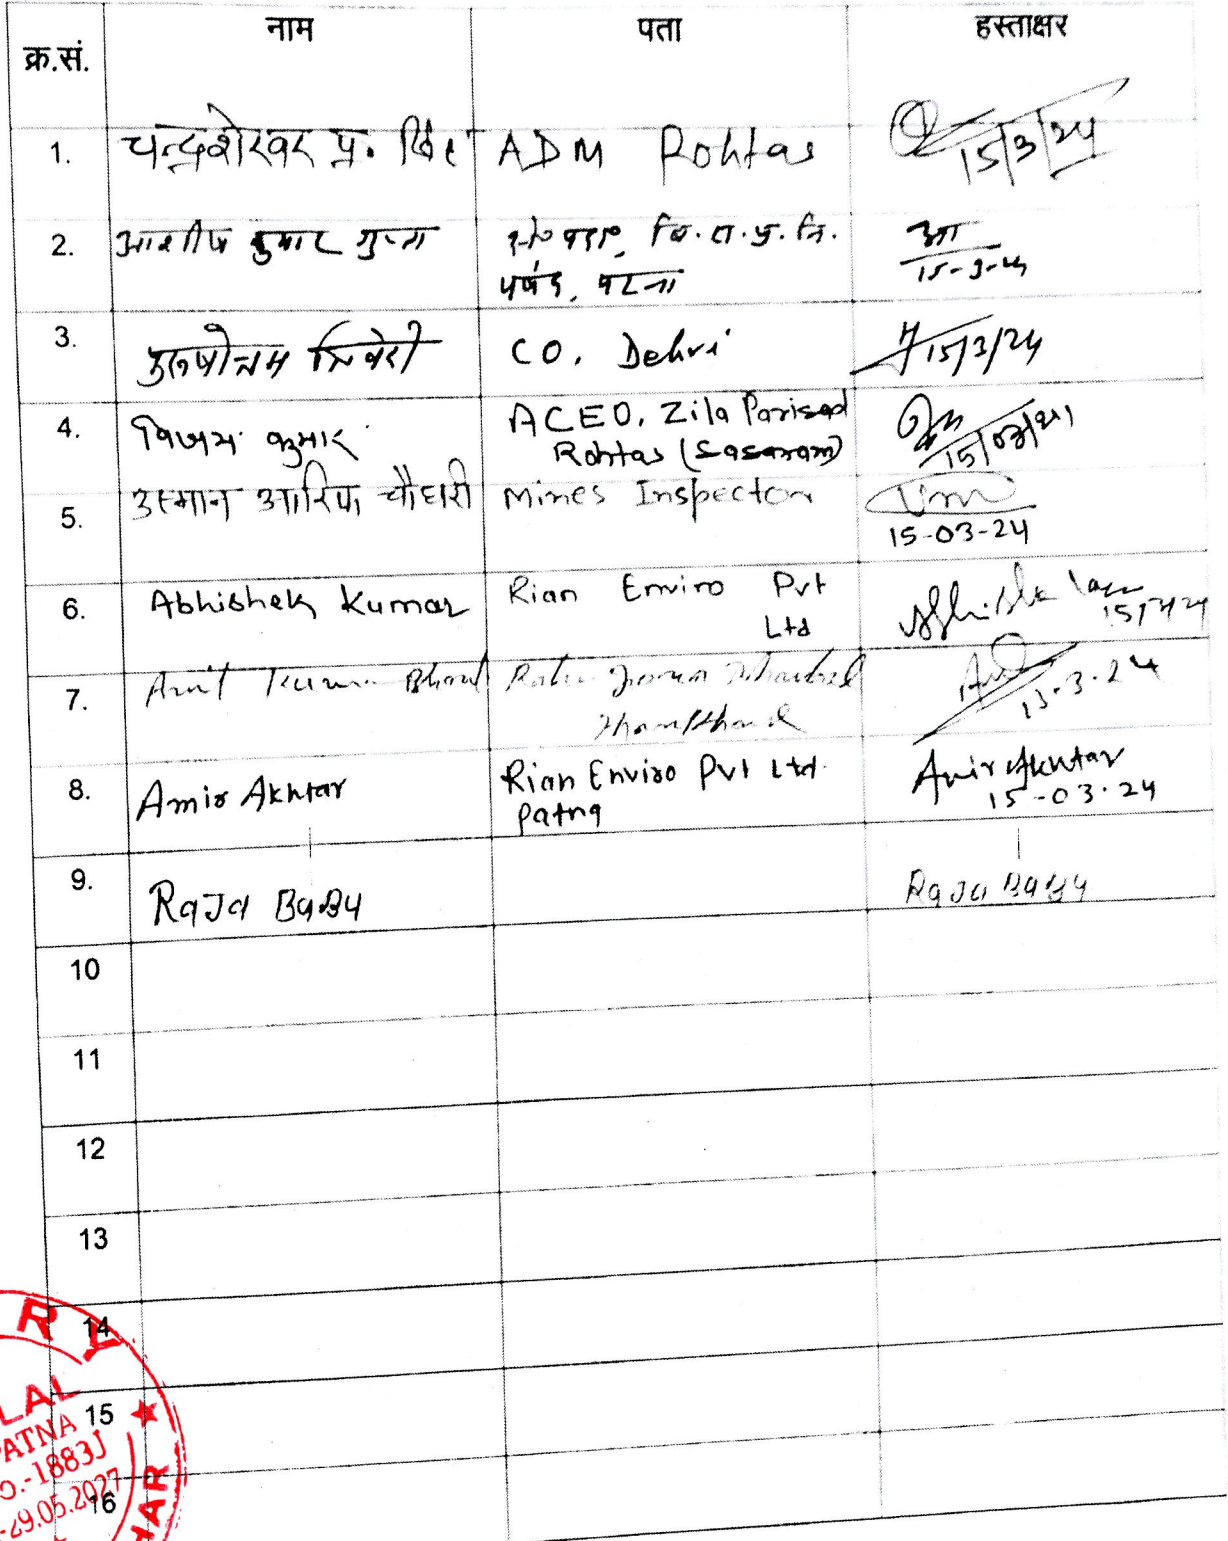 क्र.सं. नाम पता हस्ताक्षर
1. चन्द्रशेखर प्र. सिंह ADM Rohtas 15/3/24
2. आशीष कुमार गुप्ता वि.रा.प्र.नि.
पर्षद, पटना 15-3-24
3. पुरुषोत्तम त्रिवेदी CO. Dehri 15/3/24
4. विजय कुमार ACEO, Zila Parisad
Rohtas (Sasaram) 15/03/24
5. उस्मान आरिफ चौधरी Mines Inspector
15-03-24
6. Abhishek Kumar Rian Enviro Pvt
Ltd 15/3/24
7. Amit Kumar
13.3.24
8. Amir Akhtar Rian Enviro Pvt Ltd. Amir Akhtar
Patna 15-03.24
9. Raja Baby Raja Baby
10
11
12
13
14
15
16
RY
LAL
PATNA
O.-1883J
-29.05.2027
HAR